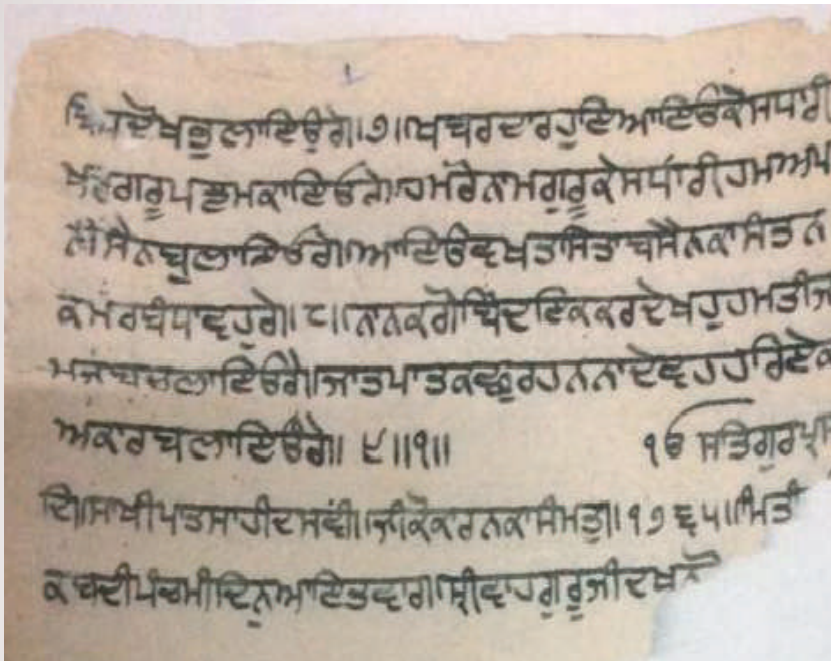 ਦੋਖ ਭੁਲਾਇਓਗੇ॥੭॥ਖਬਰਦਾਰ ਹੁਇ ਆਇਓ ਕੈਸ ਧਾਰੀ
ਖੰਡਗ ਰੂਪ ਛਮਕਾਇਓਗੇ॥ਹਮਰੇ ਨਾਮ ਗੁਰੂ ਕੇ ਸਧਾਰੀ ਹਮ ਆਪ
ਨੀ ਸੈਨ ਬੁਲਾਇਓਗੇ॥ਆਇਓ ਵਖਤ ਸਿਤਾਬ ਸੈਨ ਕਾ ਸੰਤਨ
ਕਮਰ ਬੰਧਾਵਹੁਗੇ॥੮॥ਨਾਨਕ ਗੋਬਿੰਦ ਇਕ ਕਰ ਦੇਖਹੁ ਹਮ ਤੀਜ
ਮਜਬ ਚਲਾਇਓਗੈ॥ਜਾਤ ਪਾਤ ਕਛੁ ਰਹਨ ਨਾ ਦੇਵਹ ਹਰਿ ਏਕ
ਅੰਕਾਰ ਬੁਲਾਇਓਗੇ॥੯॥੧॥ ੴ ਸਤਿਗੁਰ ਪ੍ਰ
ਦਿ॥ਸਾਖੀ ਪਾਤਸਾਹੀ ਦਸਵੀ॥ਜੀ ਕੋ ਕਰਨ ਕਾ ਸੰਮਤੁ॥੧੭੬੫॥ਮਿਤੀ
ਕ ਬਦੀ ਪੰਚਮੀ ਦਿਨੁ ਆਇਤਵਾਰ॥ਸ੍ਰੀ ਵਾਹਗੁਰੂ ਜੀ ਦਖਨ